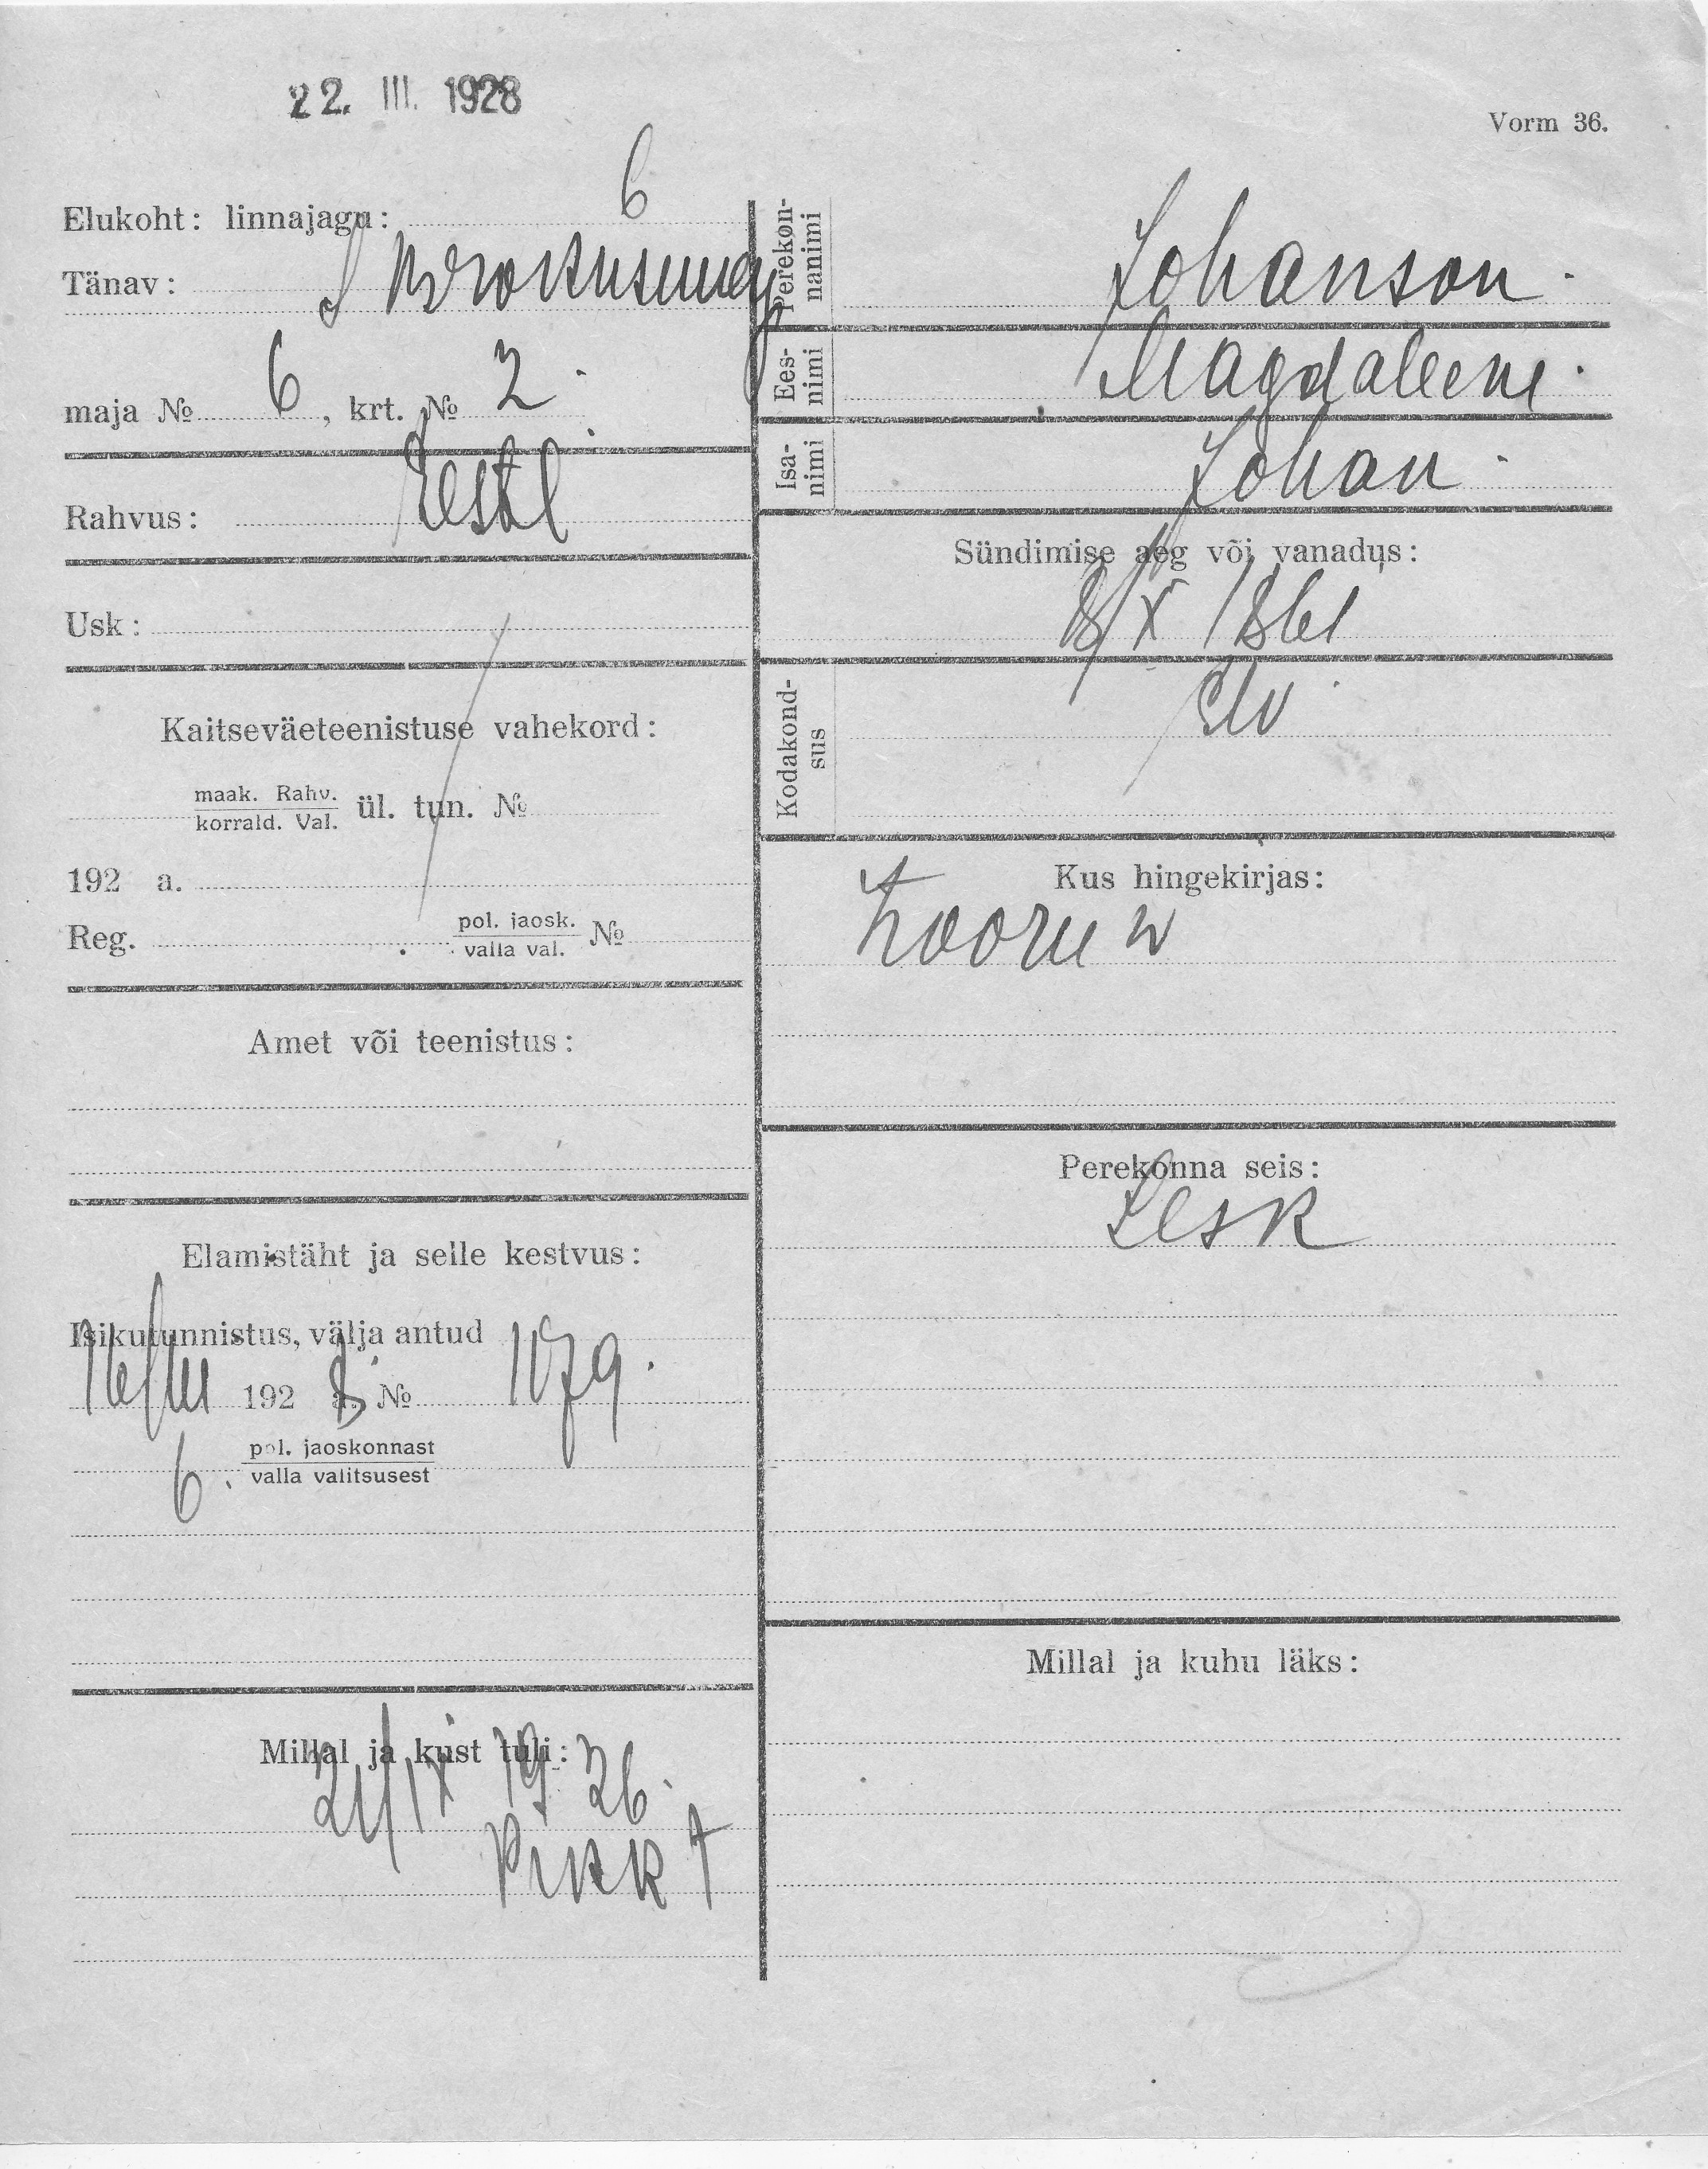 22. III. 1928
Vorm 36.
Elukoht: linnajagu: 6
Tänav:
maja № 6, krt. № 2.
Rahvus: Eesti
Usk:
Kaitseväeteenistuse vahekord:
maak. Rahv.
korrald. Val. ül. tun. №
192 a.
Reg. pol. jaosk. №
valla val.
Amet või teenistus:
Elamistäht ja selle kestvus:
Isikutunnistus, välja antud
16/III 192 8 a. № 1079.
6. pol. jaoskonnast
valla valitsusest
Millal ja kust tuli:
21/IX 1926.
Pikk t
Perekon-
nanimi Johanson.
Ees-
nimi Magdaleene.
Isa-
nimi Johan.
Sündimise aeg või vanadus:
8/X 1861
Kodakond-
sus
Kus hingekirjas:
Perekonna seis:
Lesk
Millal ja kuhu läks: